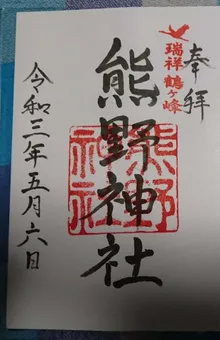 奉拝
瑞祥鶴ヶ峰
熊野神社
熊野神社
令和三年五月六日